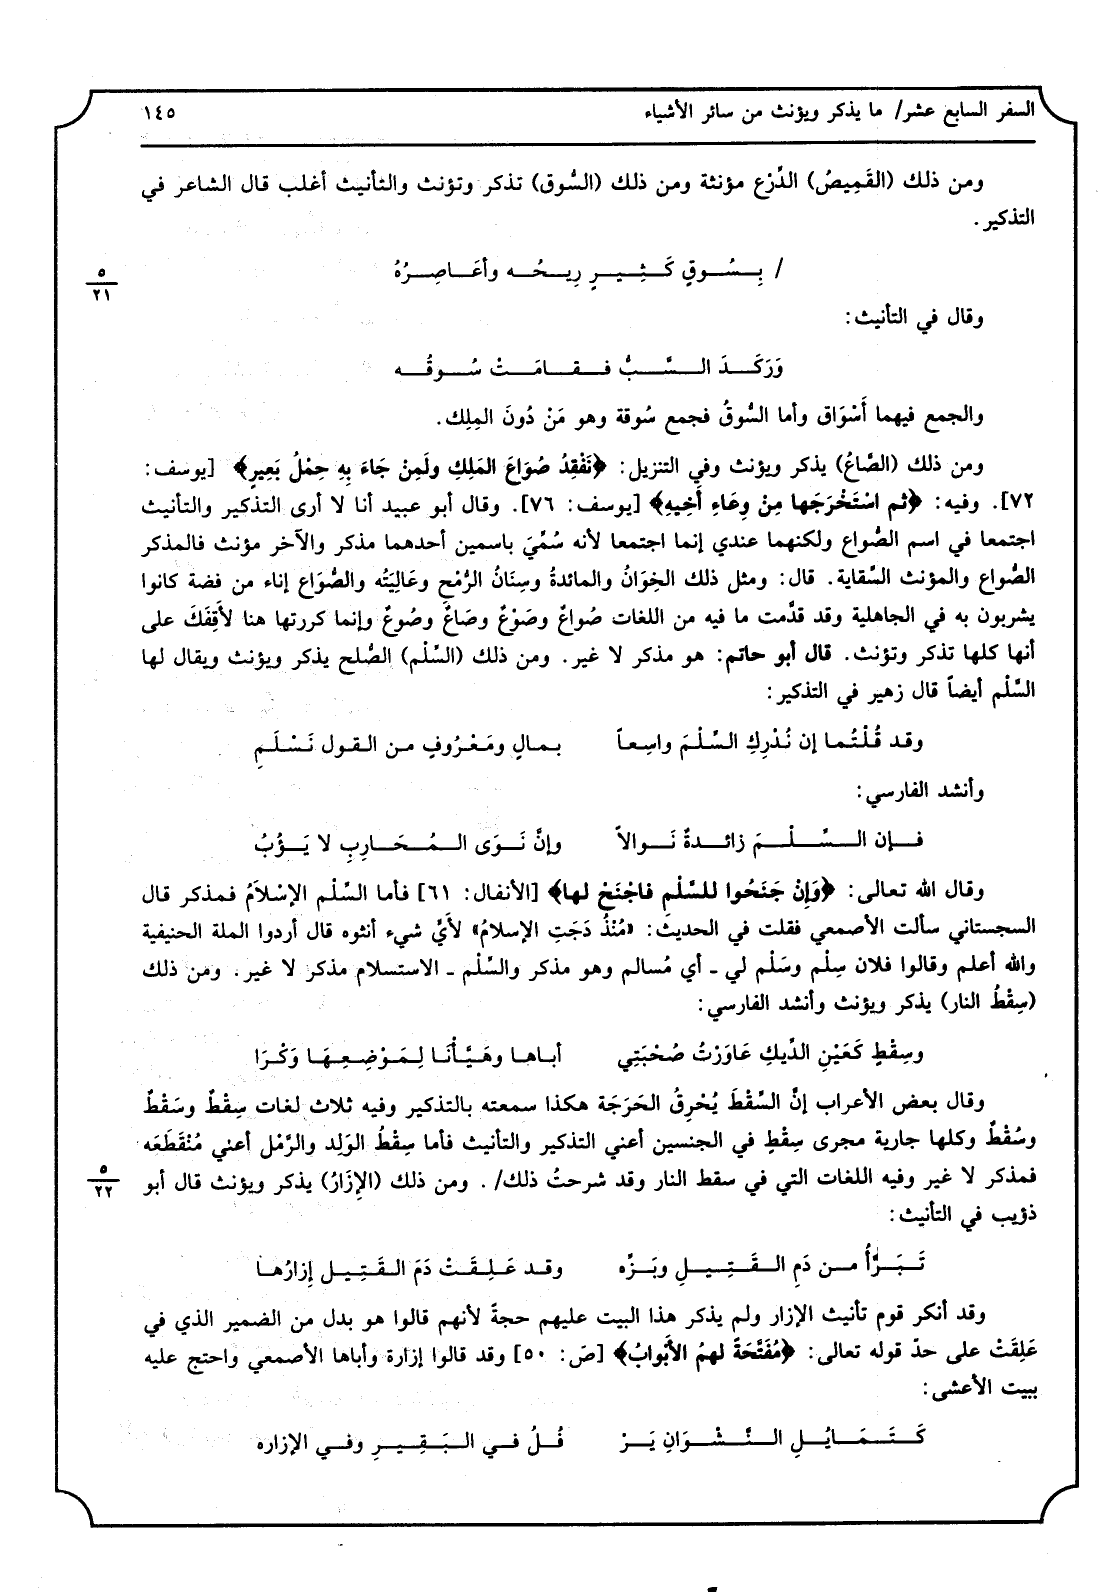 السفر السابع عشر/ ما يذكر ويؤنث من سائر الأشياء ١٤٥
ومن ذلك (القَمِيصُ) الدِّرْع مؤنثة ومن ذلك (السُّوق) تذكر وتؤنث والتأنيث أغلب قال الشاعر في
التذكير.
/ بِسُوقٍ كَثِيرٍ رِيحُه وأعَاصِرُهُ
٥
٢١
وقال في التأنيث:
وَرَكَدَ السَّبُّ فقامَتْ سُوقُه
والجمع فيهما أَسْوَاق وأما السُّوقُ فجمع سُوقة وهو مَنْ دُونَ المِلِك.
ومن ذلك (الصَّاعُ) يذكر ويؤنث وفي التنزيل: ﴿نَفْقِدُ صُوَاعَ المَلِكِ ولَمِنْ جَاءَ بِهِ حِمْلُ بَعِيرٍ﴾ [يوسف:
٧٢]. وفيه: ﴿ثم اسْتَخْرَجَها مِنْ وِعَاءِ أَخِيهِ﴾ [يوسف: ٧٦]. وقال أبو عبيد أنا لا أرى التذكير والتأنيث
اجتمعا في اسم الصُّواع ولكنهما عندي إنما اجتمعا لأنه سُمِّيَ باسمين أحدهما مذكر والآخر مؤنث فالمذكر
الصُّواع والمؤنث السِّقاية. قال: ومثل ذلك الخِوَانُ والمائدةُ وسِنَانُ الرُّمْحِ وعَالِيَتُه والصُّوَاع إناء من فضة كانوا
يشربون به في الجاهلية وقد قدَّمت ما فيه من اللغات صُواعٌ وصَوْعٌ وصَاعٌ وصُوعٌ وإنما كررتها هنا لأَقِفَكَ على
أنها كلها تذكر وتؤنث. قال أبو حاتم: هو مذكر لا غير. ومن ذلك (السِّلْم) الصُّلح يذكر ويؤنث ويقال لها
السَّلْم أيضاً قال زهير في التذكير:
وقد قُلْتُما إن نُدْرِكِ السِّلْمَ واسِعاً بمالٍ ومَعْرُوفٍ من القول نَسْلَمِ
وأنشد الفارسي:
فإن السِّلْمَ زائدةٌ نَوالاً وإنَّ نَوَى المُحَارِبِ لا يَؤُبُ
وقال الله تعالى: ﴿وَإِنْ جَنَحُوا للسَّلْمِ فاجْنَحْ لها﴾ [الأنفال: ٦١] فأما السِّلْم الإسْلاَمُ فمذكر قال
السجستاني سألت الأصمعي فقلت في الحديث: «مُنْذُ دَجَتِ الإسلامُ» لأَيِّ شيء أنثوه قال أردوا الملة الحنيفية
والله أعلم وقالوا فلان سِلْم وسَلْم لي ـ أي مُسالم وهو مذكر والسَّلْم ـ الاستسلام مذكر لا غير. ومن ذلك
(سِقْطُ النار) يذكر ويؤنث وأنشد الفارسي:
وسِقْطٍ كَعَيْنِ الدِّيكِ عَاوَرْتُ صُحْبَتِي أباها وهَيَّأْنَا لِمَوْضِعِهَا وَكْرَا
وقال بعض الأعراب إنَّ السِّقْطَ يُحْرِقُ الحَرَجَة هكذا سمعته بالتذكير وفيه ثلاث لغات سِقْطٌ وسَقْطٌ
وسُقْطٌ وكلها جارية مجرى سِقْطٍ في الجنسين أعني التذكير والتأنيث فأما سِقْطُ الوَلِد والرَّمْل أعني مُنْقَطَعَه
فمذكر لا غير وفيه اللغات التي في سقط النار وقد شرحتُ ذلك/ . ومن ذلك (الإزَارُ) يذكر ويؤنث قال أبو
٥
٢٢
ذؤيب في التأنيث:
تَبَرَّأُ من دَمِ القَتِيلِ وبَزِّه وقد عَلِقَتْ دَمَ القَتِيلِ إزارُها
وقد أنكر قوم تأنيث الإزار ولم يذكر هذا البيت عليهم حجةً لأنهم قالوا هو بدل من الضمير الذي في
عَلِقَتْ على حدّ قوله تعالى: ﴿مُفَتَّحَةً لهمُ الأَبْوابُ﴾ [صَ: ٥٠] وقد قالوا إزارة وأباها الأصمعي واحتج عليه
ببيت الأعشى:
كَتَمَايُلِ النَّشْوَانِ يَرْ فُلُ في البَقِيرِ وفي الإزاره